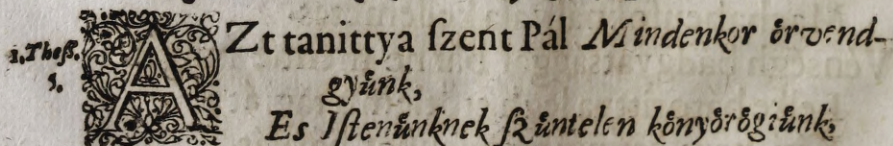 1. Theß. 5.
AZt tanittya ſzent Pál Mindenkor oͤrvend-
gyuͤnk,
Es Iſtenuͤnknek ſzuͤntelen koͤnyoͤroͤgiuͤnk,